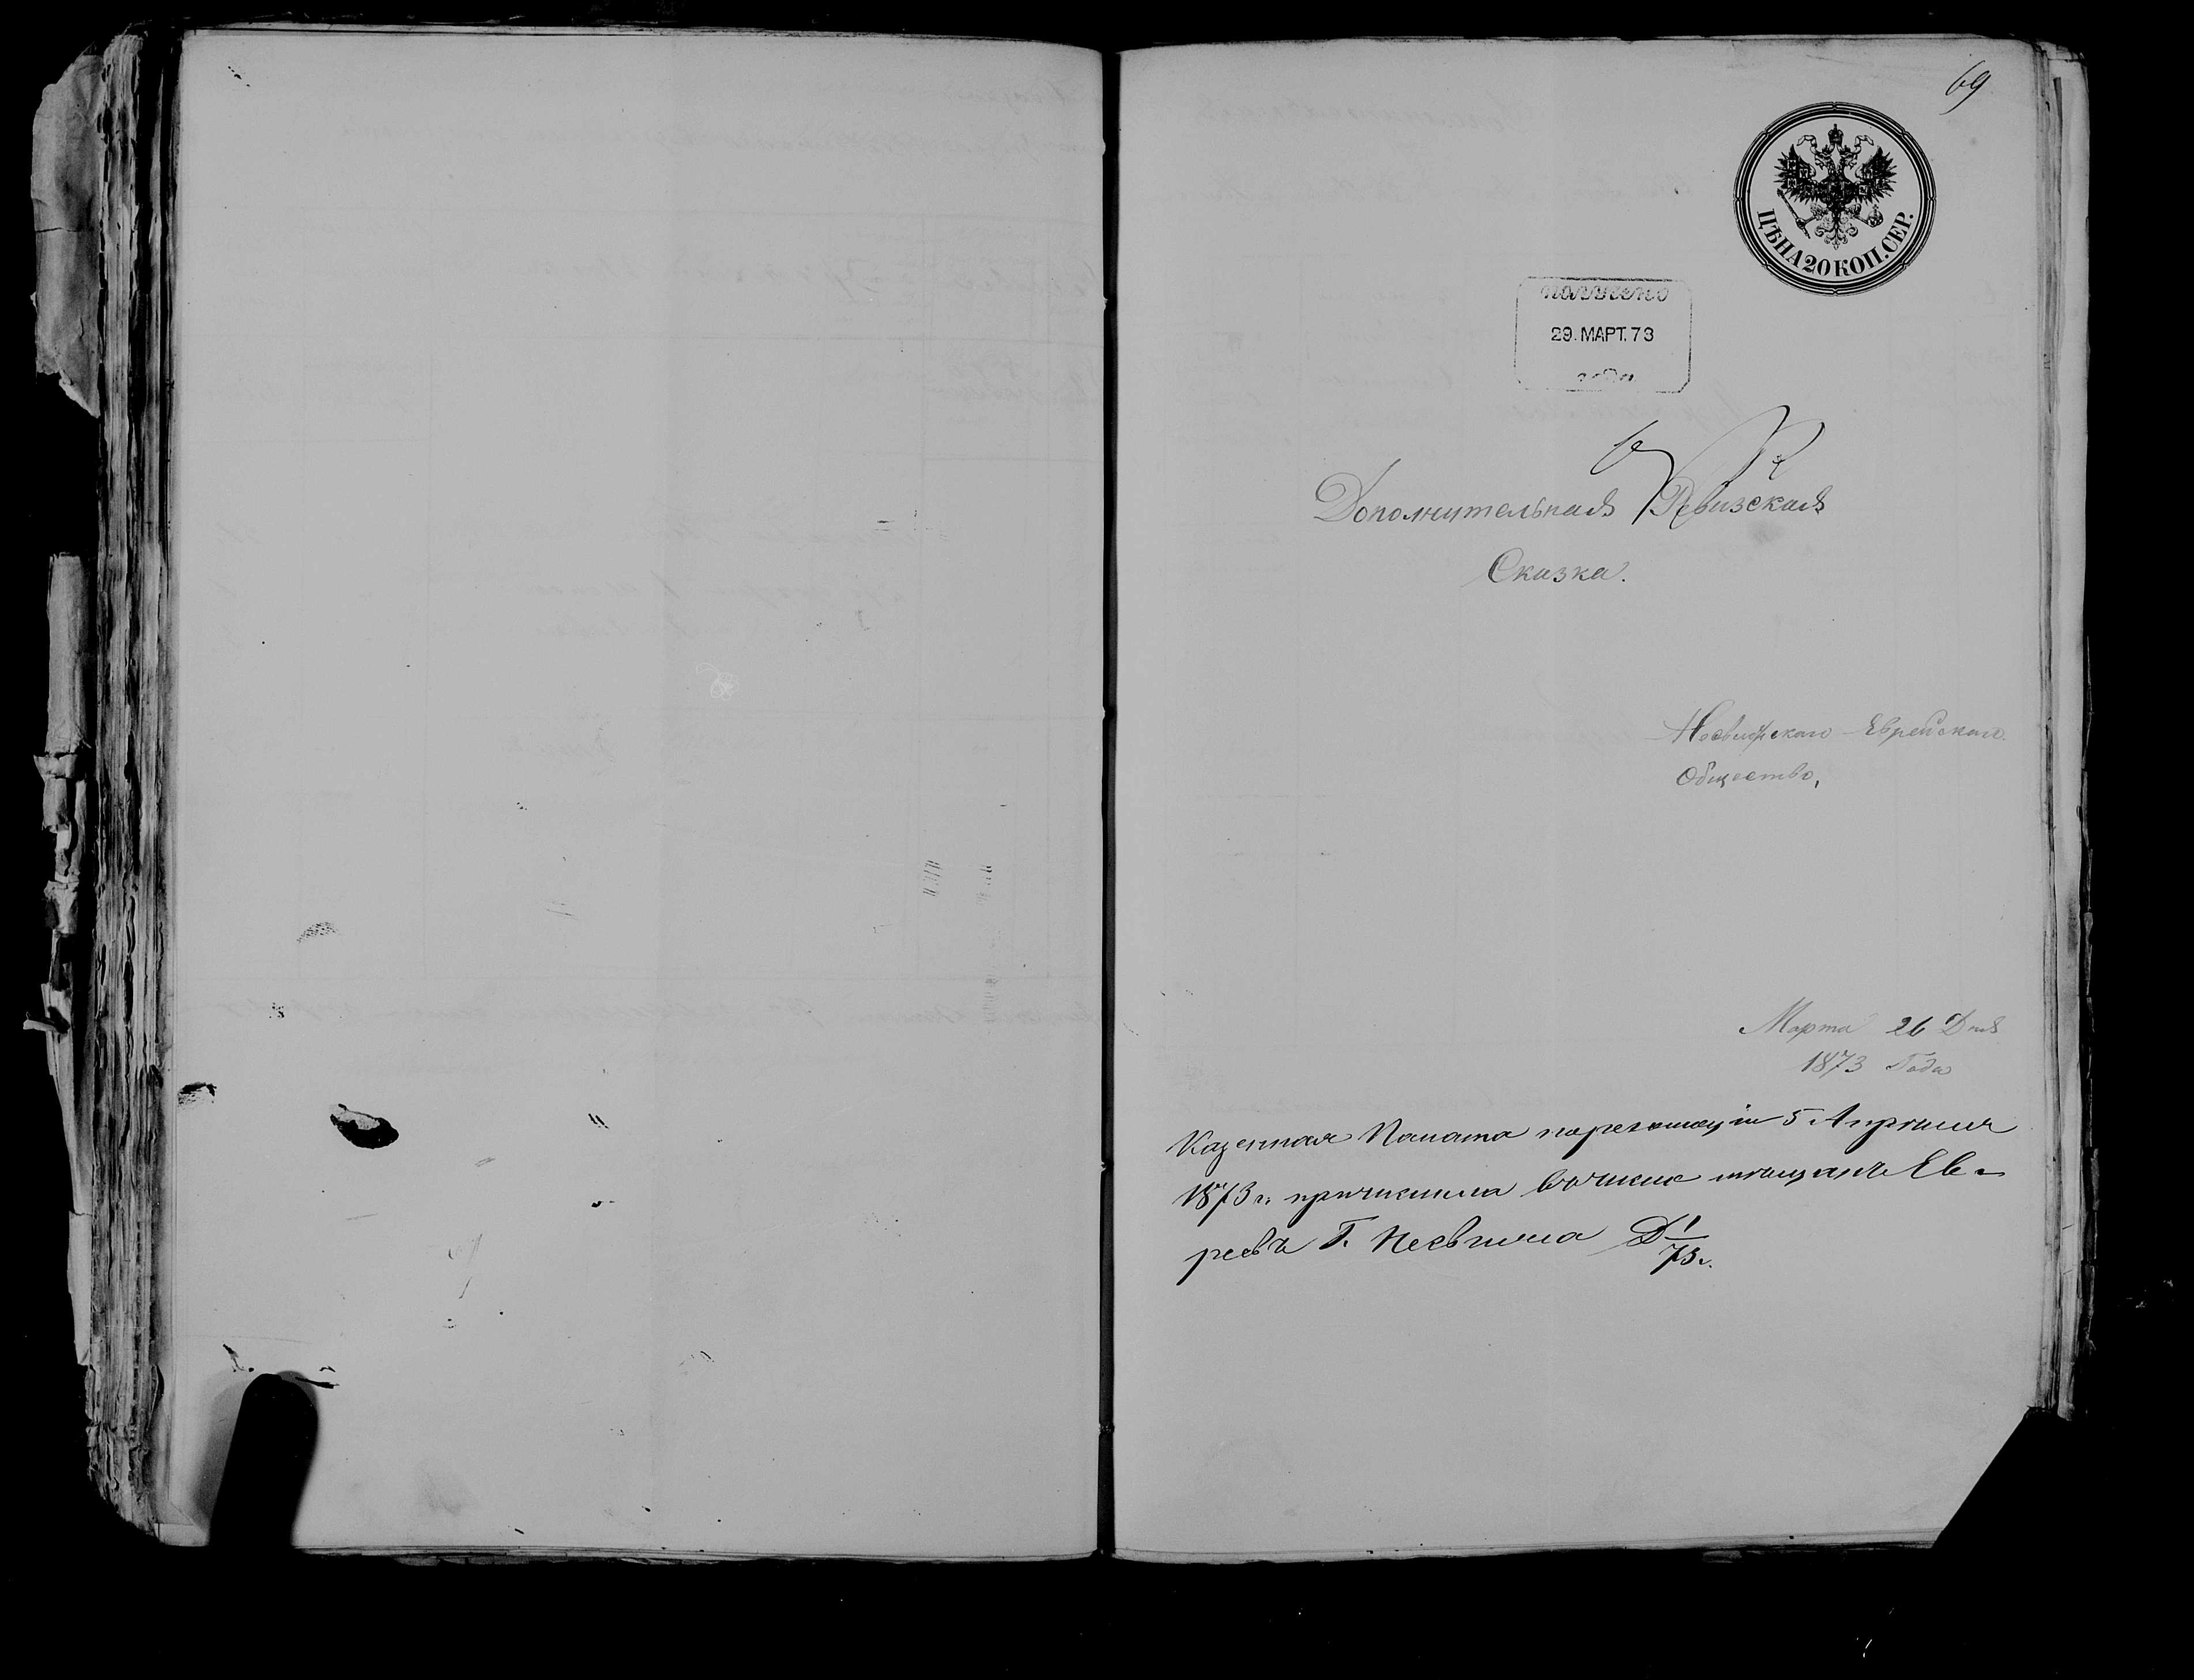 69
ЦѢНА 20 КОП. СЕР.
ПОЛУЧЕНО
29. МАРТ. 73
Дополнительная Ревизская
Сказка.
Несвижскаго Еврейскаго
Общество,
Марта 26 Дня
1873 Года
Казенная Палата по резолюціи 5 Апрѣля
1873 г. причислила въ число мѣщанъ Ев-
реевъ Г. Несвижа Д 1/73 г.